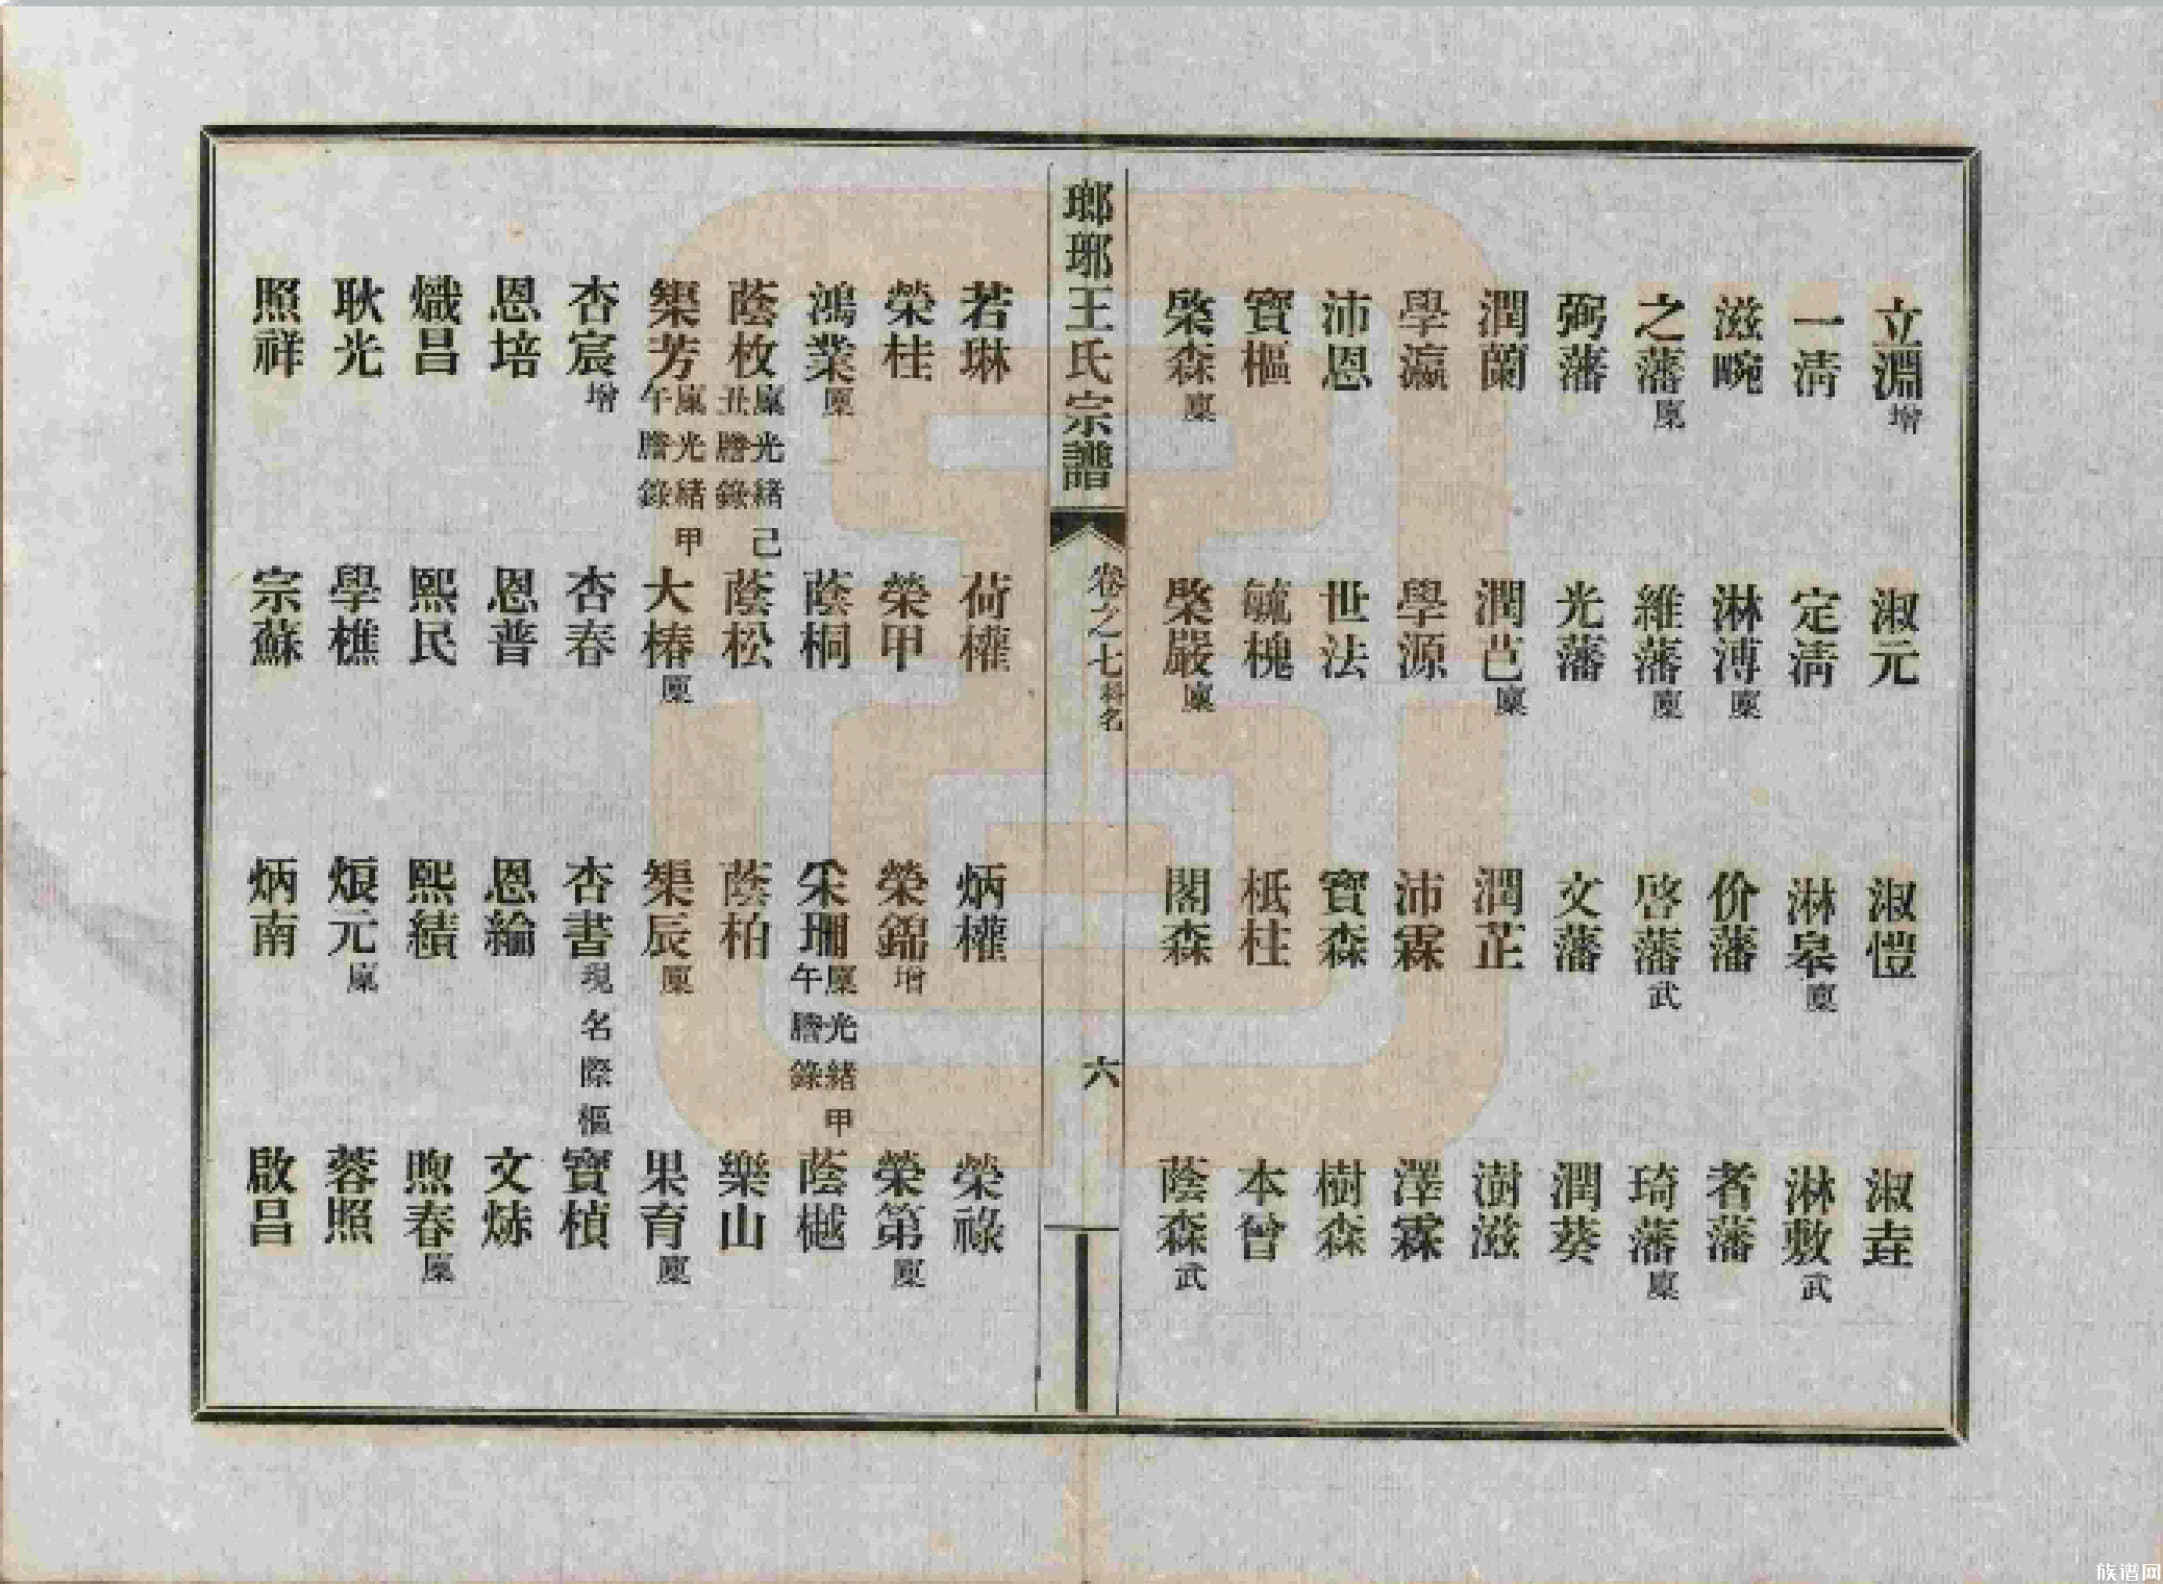 立淵增 淑元 淑愷 淑垚
一清 定清 淋皋廩 淋敷武
滋畹 淋溥廩 价藩 者藩
之藩廩 維藩廩 啓藩武 琦藩廩
弼藩 光藩 文藩 潤葵
潤蘭 潤芑廩 潤芷 澍滋
學瀛 學源 沛霖 澤霖
沛恩 世法 寶森 樹森
寶樞 毓槐 柢柱 本曾
棨森廩 棨嚴廩 閣森 蔭森武
瑯琊王氏宗譜
卷之七科名
六
若琳 荷權 炳權 榮祿
榮桂 榮甲 榮錦增 榮第廩
鴻業廩 蔭桐 采珊廩光緒甲午謄錄 蔭樾
蔭枚廩光緒己丑謄錄 蔭松 蔭柏 樂山
榘芳廩光緒甲午謄錄 大椿廩 榘辰廩 果育廩
杏宸增 杏春 杏書現名際樞 寶楨
恩培 恩普 恩綸 文炑
熾昌 熙民 熙績 煦春廩
耿光 學樵 烺元廩 蓉照
照祥 宗蘇 炳南 啟昌
族谱网